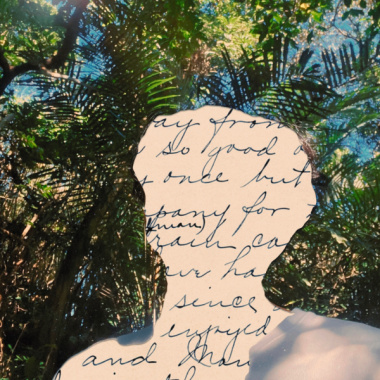 ay from
so good
once but
pany for
rain ca
ur ha
since
enjoyed
and